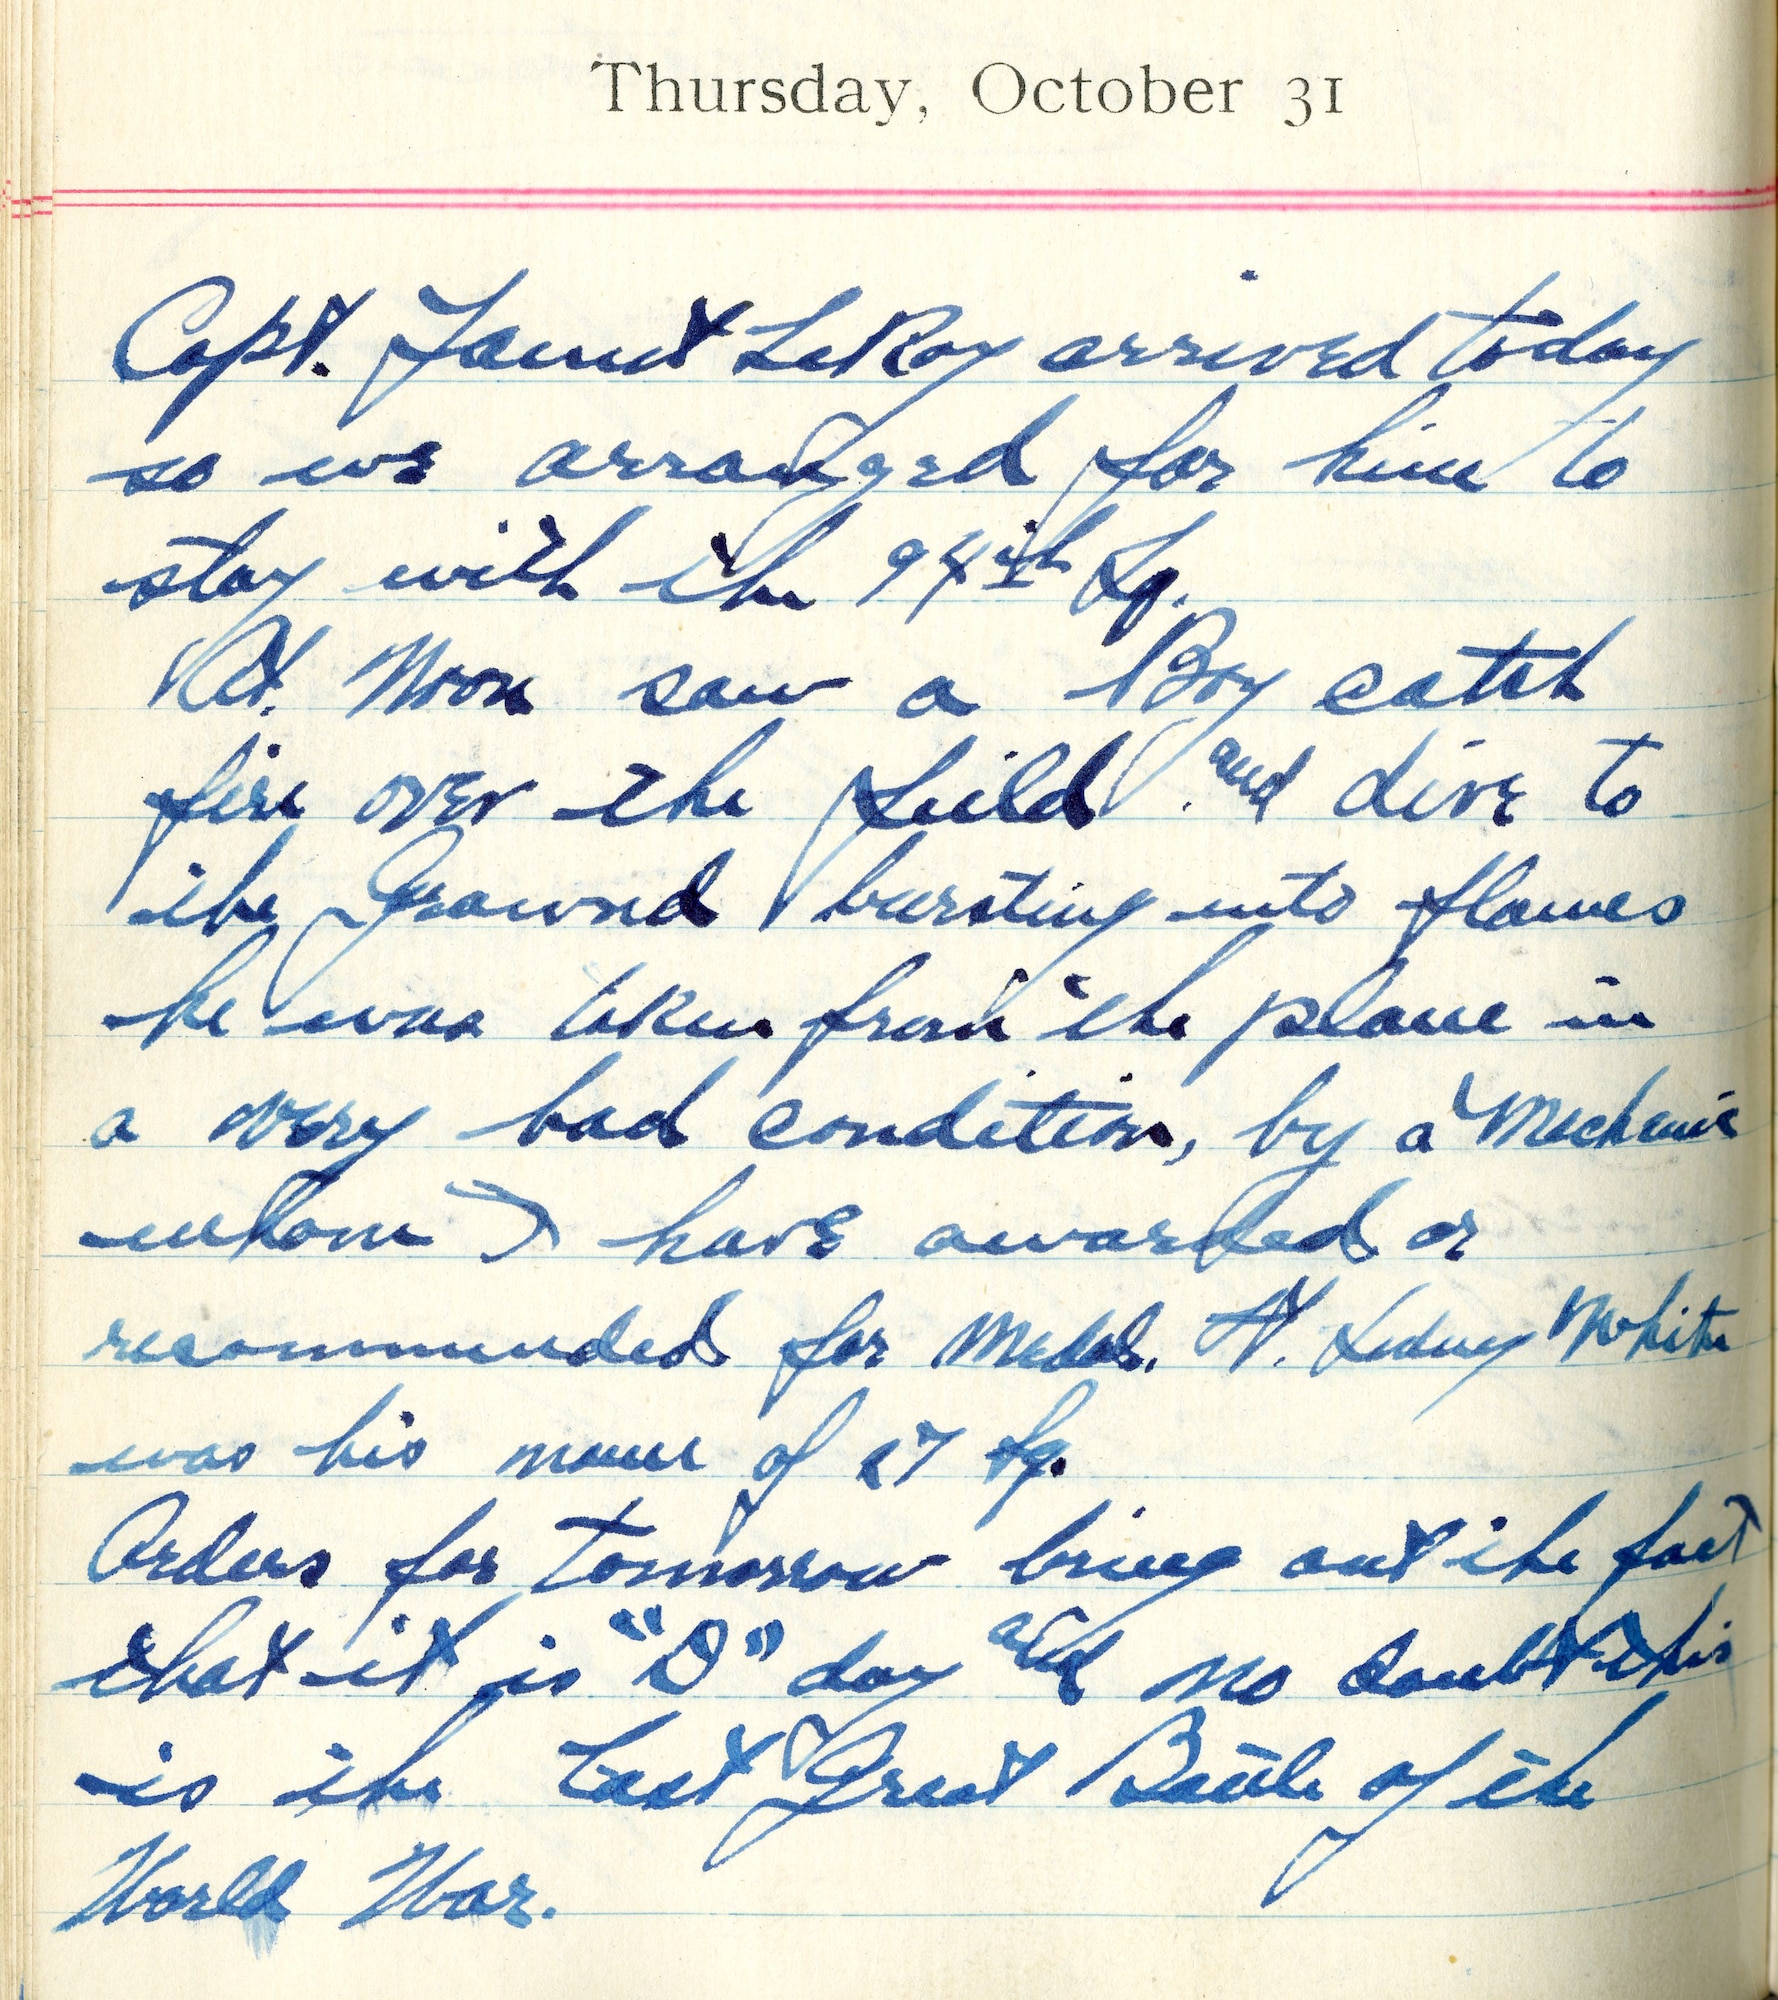 Thursday, October 31
Capt. Jaunt LeRoy arrived today
so we arranged for him to
stay with the 94th Sq.
At. Noon saw a Boy catch
fire over the feild and dive to
the Ground bursting into flames
he was taken from the plane in
a very bad condition, by a Mechanic
whom I have awarded or
recommended for Medal. Lt. White
was his name of 27 Sq.
Orders for tomorrow bring out the fact
that it is "D" day and no doubt this
is the Last Great Battle of the
World War.